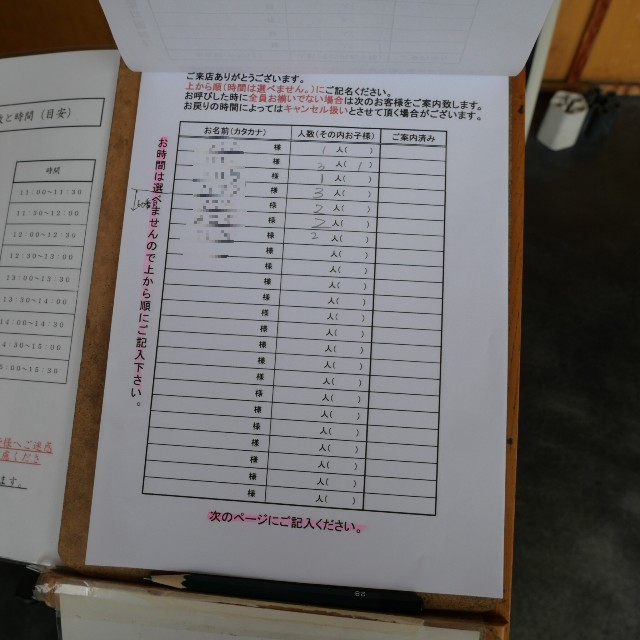 ご来店ありがとうございます。
上から順(時間は選べません。)にご記名ください。
お呼びした時に全員お揃いでない場合は次のお客様をご案内致します。
お戻りの時間によってはキャンセル扱いとさせて頂く場合がございます。
お名前(カタカナ) 人数(その内お子様) ご案内済み
様 1 人( )
様 3 人( 1 )
様 1 人( )
様 3 人( )
様 2 人( )
様 2 人( )
様 2 人( )
様 人( )
様 人( )
様 人( )
様 人( )
様 人( )
様 人( )
様 人( )
様 人( )
様 人( )
様 人( )
様 人( )
様 人( )
様 人( )
様 人( )
様 人( )
お時間は選べませんので上から順にご記入下さい。
次のページにご記入ください。
と時間(目安)
時間
11:00~11:30
11:30~12:00
12:00~12:30
12:30~13:00
13:00~13:30
13:30~14:00
14:00~14:30
14:30~15:30
15:00~15:30
ます。